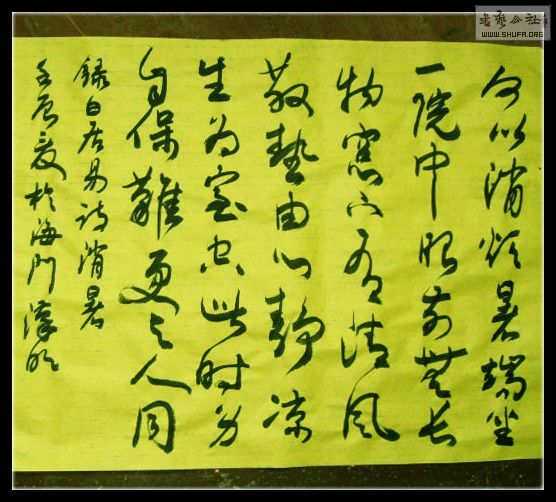 何以消烦暑端坐
一院中眼前無长
物窓下有清风
散熱由心静凉
生为室空此時身
自保難更与人同
録白居易诗消暑
壬辰夏於海門
书艺公社
WWW.SHUFA.ORG